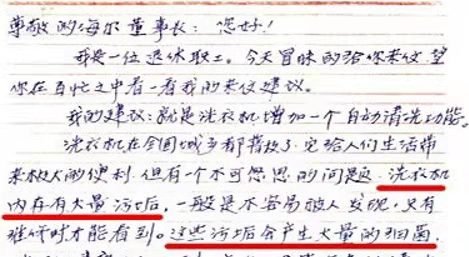 尊敬的海尔董事长:您好!
我是一位退休职工。今天冒昧的给你来仪 望
你在百忙之中看一看我的来仪建议。
我的建议:就是洗衣机增加一个自动清洗功能。
洗衣机在全国城乡都普及了 它给人们生活带
来极大的便利 但有一个不可忽思的问题 洗衣机
内存有大量污垢后,一般是不容易被人发现,只有
维修时才能看到。这些污垢会产生大量的细菌,